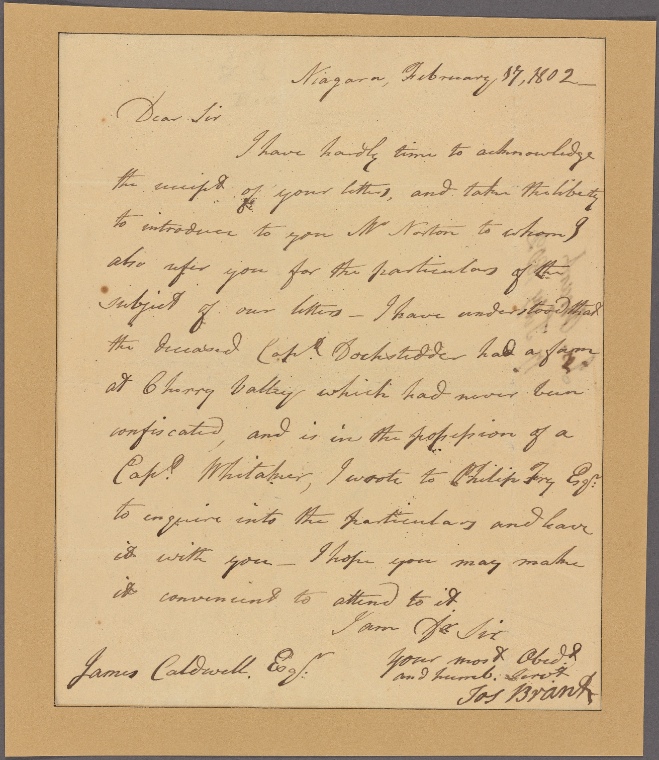 Niagara, February 17, 1802 —
Dear Sir
I have hardly time to acknowledge
the receipt of your letters, and take the liberty
to introduce to you Mr Norton to whom I
also refer you for the particulars of the
subject of our letters — I have understood that
the deceased Capt. Dochstedder had a farm
at Cherry Valley which had never been
confiscated, and is in the possession of a
Capt. Whitaker, I wrote to Philip Fry Esqr.
to enquire into the particulars and leave
it with you — I hope you may make
it convenient to attend to it
I am Dr Sir
your most Obedt
and humb. Servt
Jos Brant
James Caldwell. Esqr.